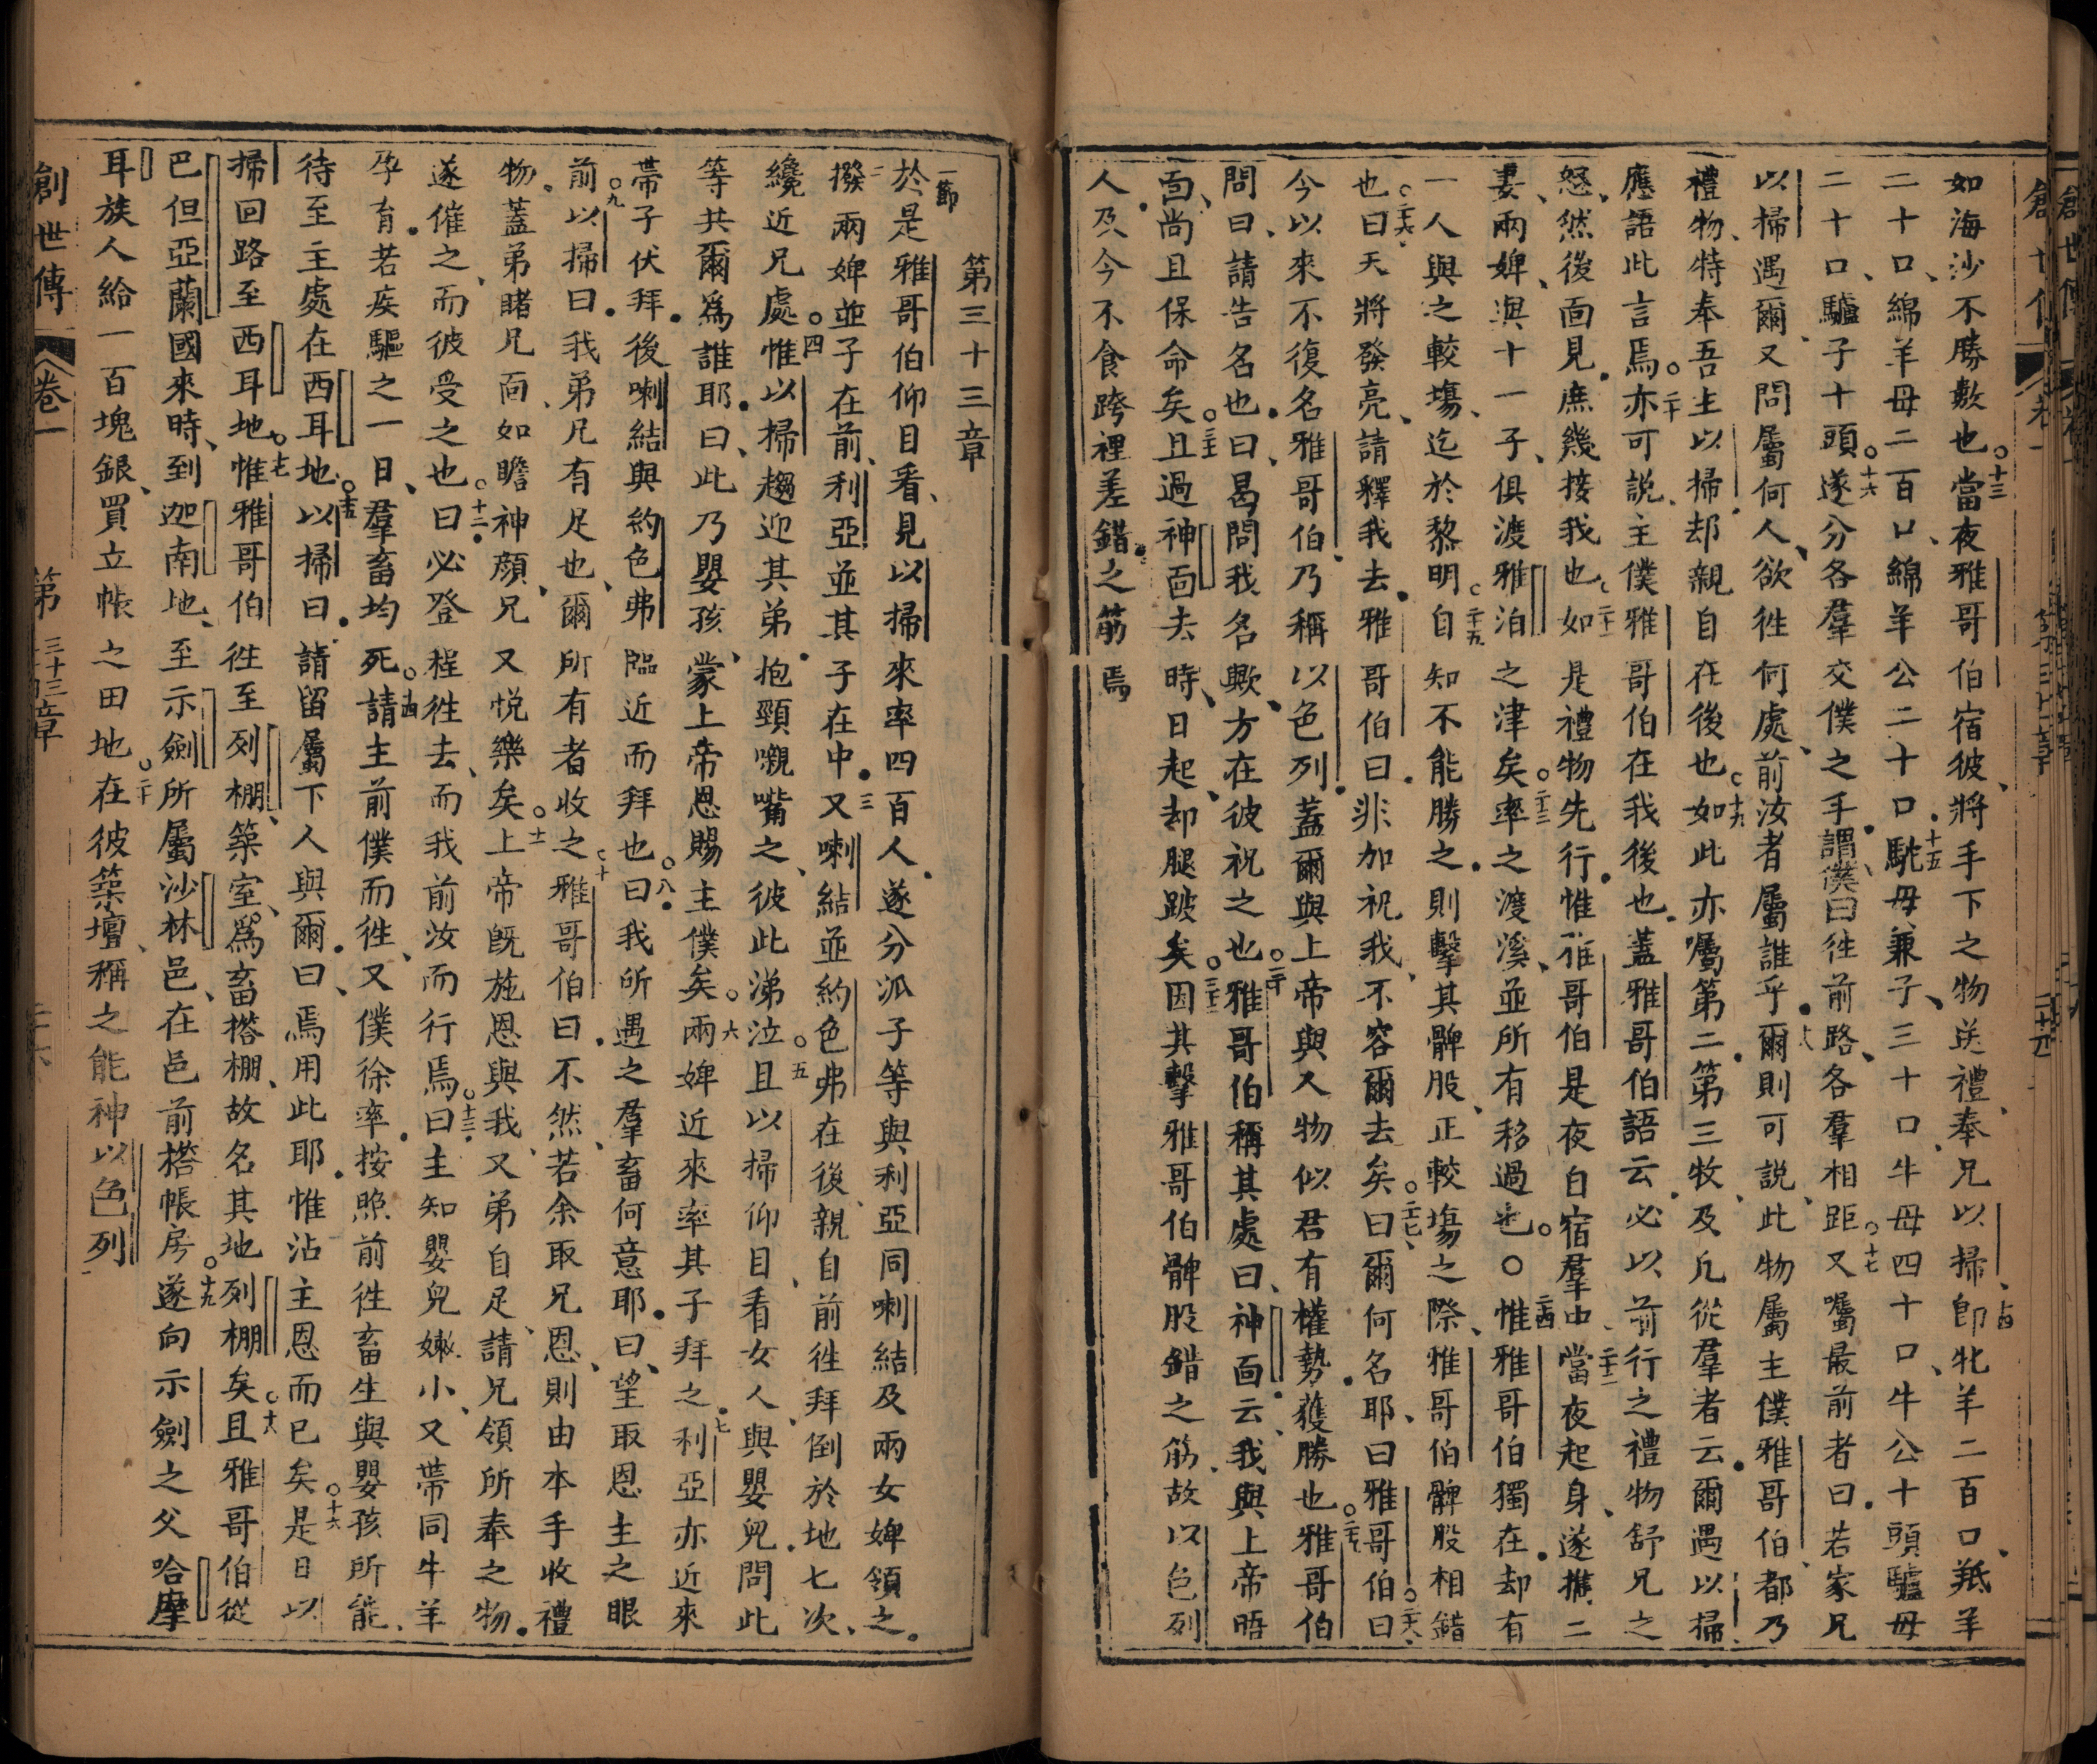 如海沙不勝數也○十三當夜雅哥伯宿彼將手下之物送禮奉兄以掃○十四卽牝羊二百口羝羊
二十口綿羊母二百口綿羊公二十口○十五駝母兼子三十口牛母四十口牛公十頭驢母
二十口驢子十頭○十六遂分各羣交僕之手謂僕曰往前路各羣相距○十七又囑最前者曰若家兄
以掃遇爾又問屬何人欲往何處前汝者屬誰乎○十八爾則可說此物屬主僕雅哥伯都乃
禮物特奉吾主以掃却親自在後也○十九如此亦囑第二第三牧及凡從羣者云爾遇以掃
應語此言焉○二十亦可說主僕雅哥伯在我後也蓋雅哥伯語云必以前行之禮物舒兄之
怒然後面見庶幾接我也○二十一如是禮物先行惟雅哥伯是夜自宿羣中○二十二當夜起身遂攜二
妻兩婢與十一子俱渡雅泊之津矣○二十三率之渡溪並所有移過也○○二十四惟雅哥伯獨在却有
一人與之較塲迄於黎明○二十五自知不能勝之則擊其髀股正較塲之際雅哥伯髀股相錯
也○二十六曰天將發亮請釋我去雅哥伯曰非加祝我不容爾去矣○二十七曰爾何名耶曰雅哥伯○二十八曰
今以來不復名雅哥伯乃稱以色列蓋爾與上帝與人物似君有權勢獲勝也○二十九雅哥伯
問曰請告名也曰曷問我名歟方在彼祝之也○三十雅哥伯稱其處曰神面云我與上帝晤
面尚且保命矣○三十一且過神面去時日起却腿跛矣○三十二因其擊雅哥伯髀股錯之筋故以色列
人及今不食跨裡差錯之筋焉
創世傳 卷一
第三十三章
一節於是雅哥伯仰目看見以掃來率四百人遂分派子等與利亞同喇結及兩女婢領之
二撥兩婢並子在前利亞並其子在中○三又喇結並約色弗在後親自前往拜倒於地七次
纔近兄處○四惟以掃趨迎其弟抱頸嚫嘴之彼此涕泣○五且以掃仰目看女人與嬰兒問此
等共爾爲誰耶曰此乃嬰孩蒙上帝恩賜主僕矣○六兩婢近來率其子拜之○七利亞亦近來
帶子伏拜後喇結與約色弗臨近而拜也○八曰我所遇之羣畜何意耶曰望取恩主之眼
前○九以掃曰我弟凡有足也爾所有者收之○十雅哥伯曰不然若余取兄恩則由本手收禮
物蓋弟睹兄面如瞻神顏兄又悦樂矣○十一上帝旣施恩與我又弟自足請兄領所奉之物
遂催之而彼受之也○十二曰必登程往去而我前汝而行焉○十三曰主知嬰兒嫩小又帶同牛羊
孕育若疾驅之一日羣畜均死○十四請主前僕而往又僕徐率按照前往畜生與嬰孩所能
待至主處在西耳地○十五以掃曰請留屬下人與爾曰焉用此耶惟沾主恩而已矣○十六是日以
掃回路至西耳地○十七惟雅哥伯往至列棚築室爲畜搭棚故名其地列棚矣○十八且雅哥伯從
巴但亞蘭國來時到迦南地至示劍所屬沙林邑在邑前搭帳房○十九遂向示劍之父哈摩
耳族人給一百塊銀買立帳之田地○二十在彼築壇稱之能神以色列
創世傳 卷一 第三十三章